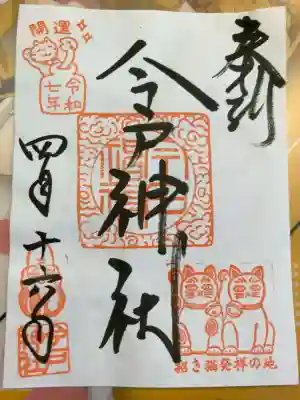 奉拝
今戸神社
開運
令和
七年
四月十六日
招き猫発祥の地